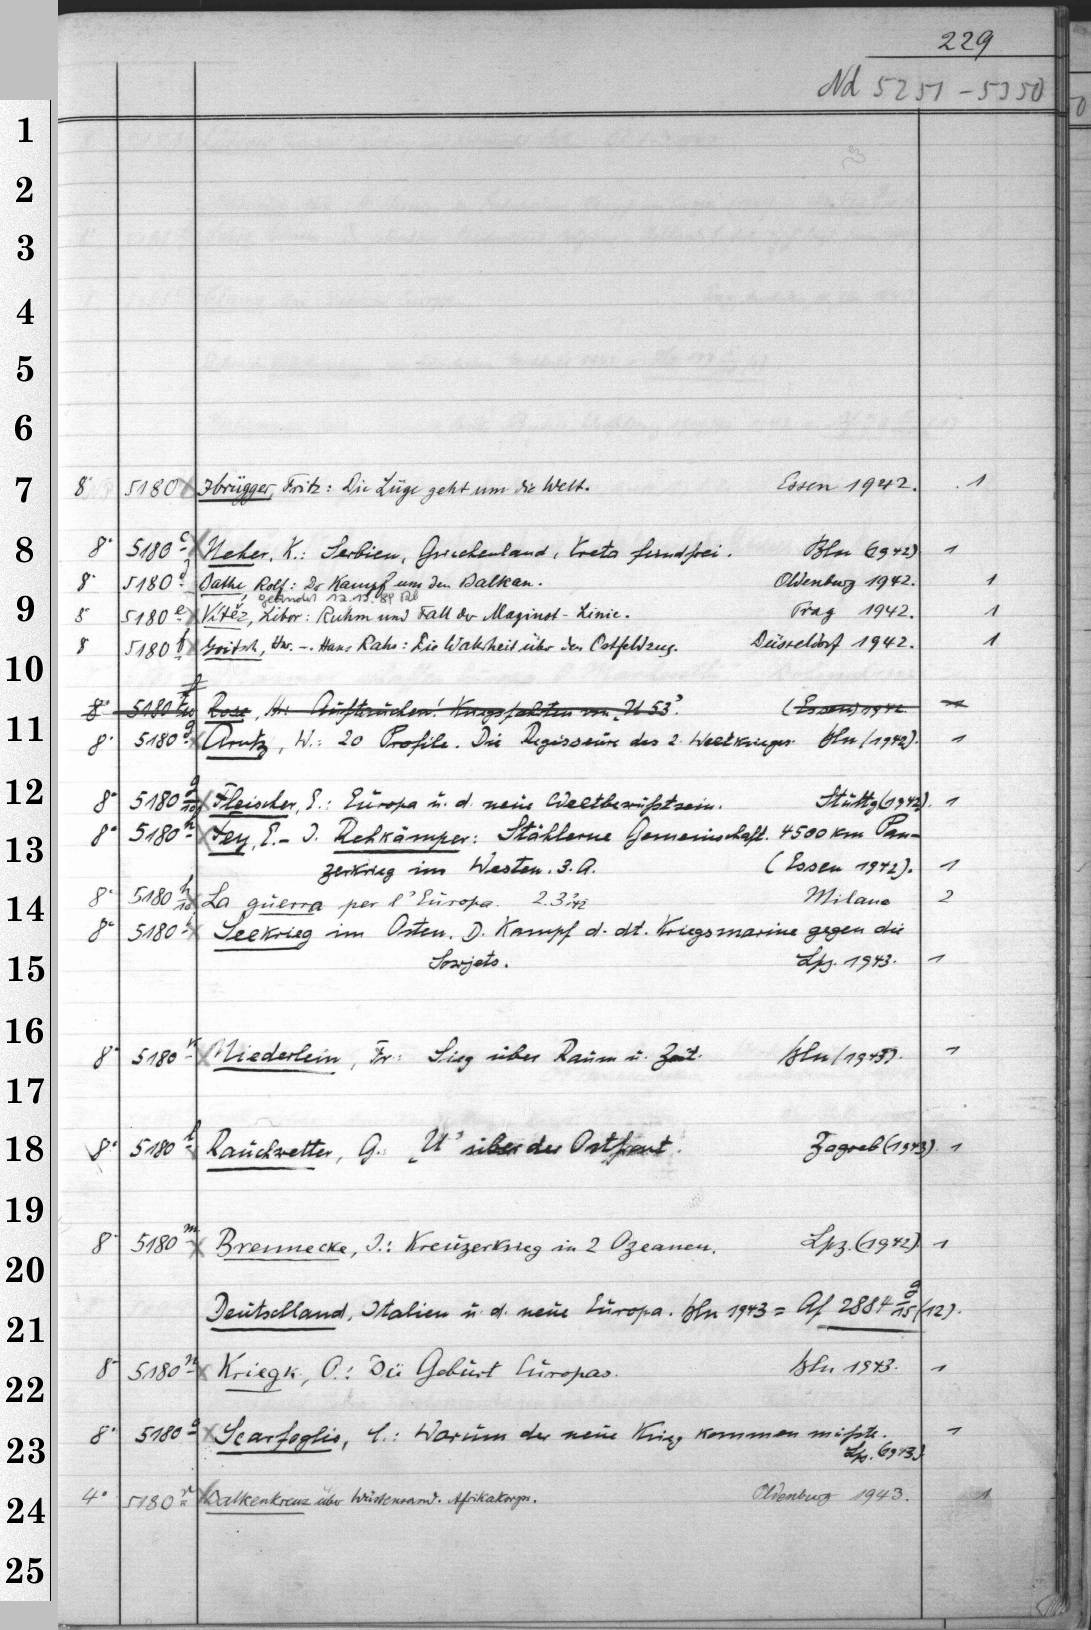 229
Nd 5251 - 5350
1
2
3
4
5
6
7
8° 5180 Zbrügger, Fritz: Die Lüge geht um die Welt. Essen 1942. 1
8
8° 5180 c Neher, K.: Serbien, Griechenland, Kreta feindfrei. Bln (1942) 1
8° 5180 d Bathe, Rolf: Der Kampf um den Balkan. Oldenburg 1942. 1
geändert 12.12.89
9
8 5180 e Vítěz, Libor: Ruhm und Fall der Maginot-Linie. Prag 1942. 1
8 5180 f Goitsch, Hnr. -. Hans Rahs: Die Wahrheit über den Ostfeldzug. Düsseldorf 1942. 1
10
8° 5180 Rose, H: Auftauchen! Kriegsfahrten von „U 53". (Essen) 1942
11
8° 5180 g Arntz, W.: 20 Profile. Die Regisseure des 2. Weltkrieges. Bln (1942). 1
12
8° 5180 g/10 Fleischer, E.: Europa u. d. neue Weltbewußtsein. Stuttg (1942). 1
8° 5180 h Fey, E. - J. Rehkämper: Stählerne Gemeinschaft. 4500 km Pan-
13
zerkrieg im Westen. 3. A. (Essen 1942). 1
8° 5180 h/10 La guerra per l'Europa. 2.3.'42 Milano 2
14
8° 5180 i Seekrieg im Osten. D. Kampf d. dt. Kriegsmarine gegen die
15
Sowjets. Lpz. 1943. 1
16
8° 5180 k Niederlein, Fr: Sieg über Raum u. Zeit. Bln (1943). 1
17
18
8° 5180 l Rauchwetter, G. „U" über der Ostfront. Zagreb (1943). 1
19
8° 5180 m Brennecke, J.: Kreuzerkrieg in 2 Ozeanen. Lpz. (1942). 1
20
Deutschland, Italien u. d. neue Europa. Bln 1943 = Af 2884 g/15 (12).
21
8° 5180 n Kriegk, O.: Die Geburt Europas. Bln 1943. 1
22
8° 5180 o Scarfoglio, C.: Warum der neue Krieg kommen mußte. 1
23
Lp. (1943)
4° 5180 Balkenkreuz über Wüstensand. Afrikakorps. Oldenburg 1943. 1
24
25